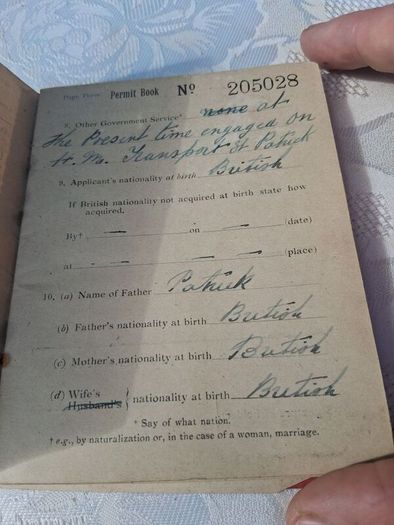 Page Three Permit Book Nº 205028
8. Other Government Service* none at
the Present time engaged on
H. M. Transport St Patrick
9. Applicant's nationality at birth British
If British nationality not acquired at birth state how
acquired.
By† — on — (date)
at — — — (place)
10. (a) Name of Father Patrick
(b) Father's nationality at birth British
(c) Mother's nationality at birth British
(d) Wife's
Husband's } nationality at birth British
* Say of what nation.
† e.g., by naturalization or, in the case of a woman, marriage.